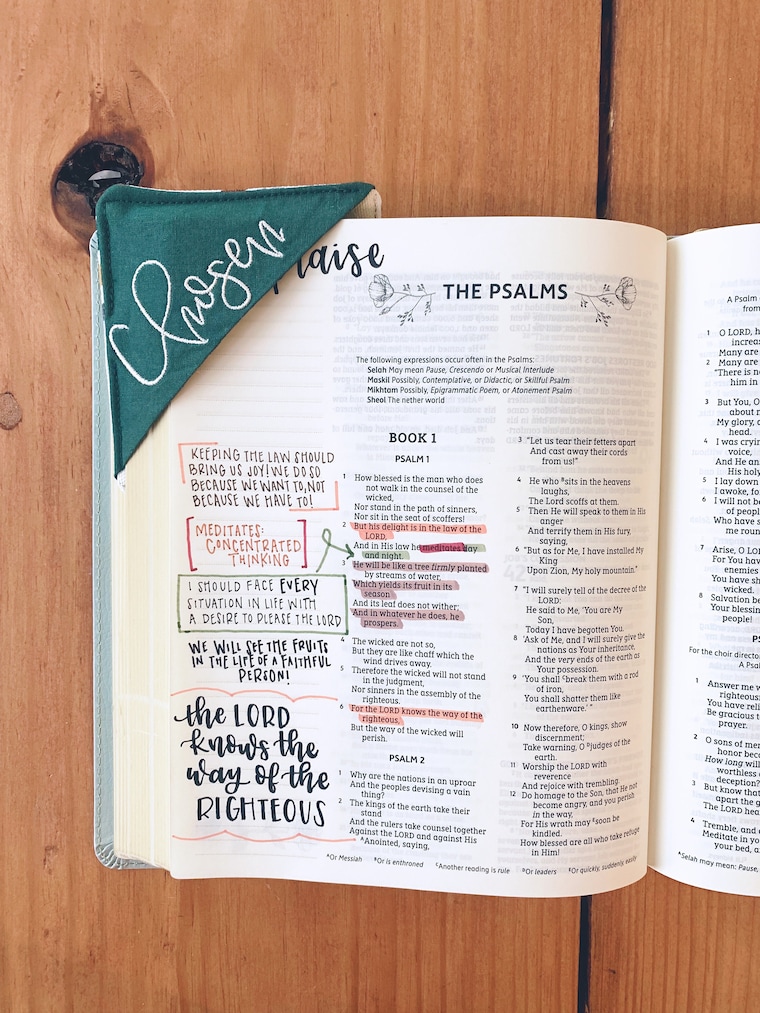 Chosen
raise
THE PSALMS
The following expressions occur often in the Psalms:
Selah May mean Pause, Crescendo or Musical Interlude
Maskil Possibly, Contemplative, or Didactic, or Skillful Psalm
Mikhtam Possibly, Epigrammatic Poem, or Atonement Psalm
Sheol The nether world
KEEPING THE LAW SHOULD
BRING US JOY! WE DO SO
BECAUSE WE WANT TO, NOT
BECAUSE WE HAVE TO!
MEDITATES:
CONCENTRATED
THINKING
I SHOULD FACE EVERY
SITUATION IN LIFE WITH
A DESIRE TO PLEASE THE LORD
WE WILL SEE THE FRUITS
IN THE LIFE OF A FAITHFUL
PERSON!
the LORD
knows the
way of the
RIGHTEOUS
BOOK 1
PSALM 1
1 How blessed is the man who does
not walk in the counsel of the
wicked,
Nor stand in the path of sinners,
Nor sit in the seat of scoffers!
2 But his delight is in the law of the
LORD,
And in His law he meditates day
and night.
3 He will be like a tree firmly planted
by streams of water,
Which yields its fruit in its
season
And its leaf does not wither;
And in whatever he does, he
prospers.
4 The wicked are not so,
But they are like chaff which the
wind drives away.
5 Therefore the wicked will not stand
in the judgment,
Nor sinners in the assembly of the
righteous.
6 For the LORD knows the way of the
righteous,
But the way of the wicked will
perish.
PSALM 2
1 Why are the nations in an uproar
And the peoples devising a vain
thing?
2 The kings of the earth take their
stand
And the rulers take counsel together
Against the LORD and against His
AAnointed, saying,
3 “Let us tear their fetters apart
And cast away their cords
from us!”
4 He who Bsits in the heavens
laughs,
The Lord scoffs at them.
5 Then He will speak to them in His
anger
And terrify them in His fury,
saying,
6 “But as for Me, I have installed My
King
Upon Zion, My holy mountain.”
7 “I will surely tell of the decree of the
LORD:
He said to Me, ‘You are My
Son,
Today I have begotten You.
8 ‘Ask of Me, and I will surely give the
nations as Your inheritance,
And the very ends of the earth as
Your possession.
9 ‘You shall Cbreak them with a rod
of iron,
You shall shatter them like
earthenware.’ ”
10 Now therefore, O kings, show
discernment;
Take warning, O Djudges of the
earth.
11 Worship the LORD with
reverence
And rejoice with trembling.
12 Do homage to the Son, that He not
become angry, and you perish
in the way,
For His wrath may Esoon be
kindled.
How blessed are all who take refuge
in Him!
AOr Messiah BOr is enthroned CAnother reading is rule DOr leaders EOr quickly, suddenly, easily
A Psalm
from
1 O LORD, h
increas
Many are
2 Many are
“There is n
him in
3 But You, O
about m
My glory, a
head.
4 I was cryin
voice,
And He an
His holy
5 I lay down
I awoke, fo
6 I will not b
of people
Who have s
me roun
7 Arise, O LO
For You hav
enemies
You have sh
wicked.
8 Salvation be
Your blessin
people!
PS
For the choir direct
A Psa
1 Answer me w
righteous
You have reli
Be gracious t
prayer.
2 O sons of me
honor beco
How long will
worthless a
deception?
3 But know that
apart the g
The LORD hea
4 Tremble, and
Meditate in yo
your bed, a
ASelah may mean: Pause,